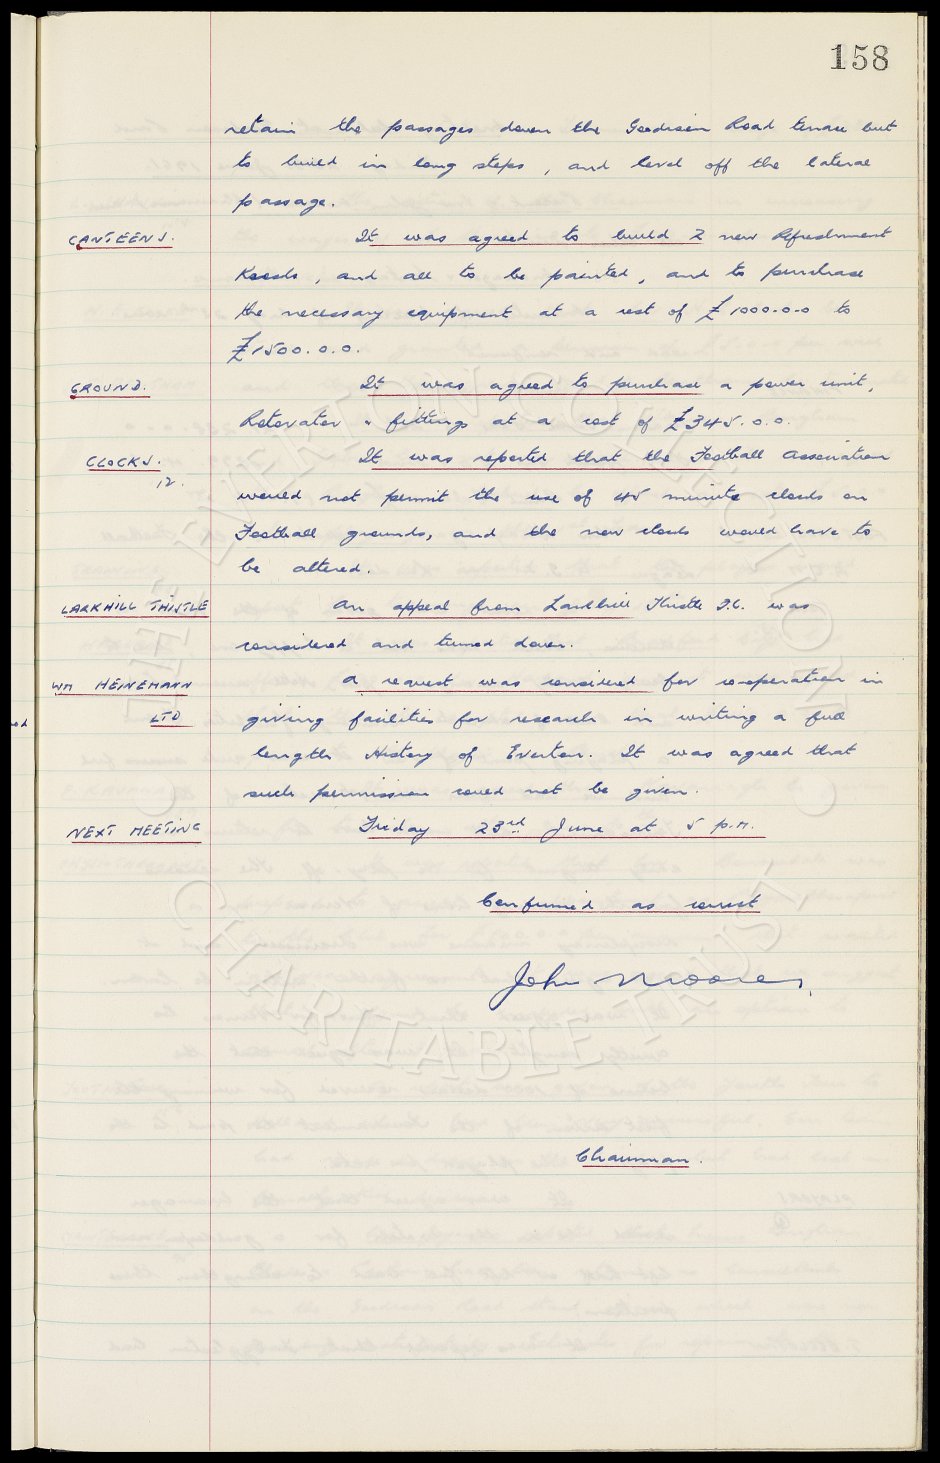 158
retain the passages down the Goodison Road terrace but
to build in long steps, and level off the lateral
passage.
CANTEENS. It was agreed to build 2 new Refreshment
Kiosks, and all to be painted, and to purchase
the necessary equipment at a cost of £1000.0.0 to
£1500.0.0.
GROUND. It was agreed to purchase a power unit,
Rotovator & fittings at a cost of £345.0.0.
CLOCKS. It was reported that the Football Association
12. would not permit the use of 45 minute clocks on
Football grounds, and the new clocks would have to
be altered.
LARKHILL THISTLE An appeal from Larkhill Thistle F.C. was
considered and turned down.
WM HEINEMANN A request was considered for co-operation in
LTD giving facilities for research in writing a full
length History of Everton. It was agreed that
such permission could not be given.
NEXT MEETING Friday 23rd June at 5 p.m.
Confirmed as correct
John Moores.
Chairman.
THE EVERTON COLLECTION
CHARITABLE TRUST